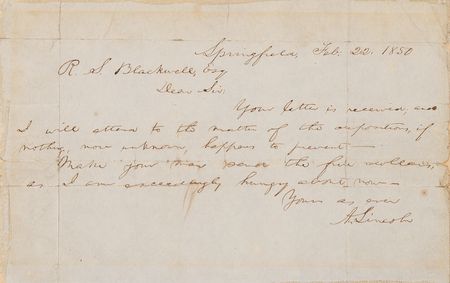 Springfield, Feb. 22. 1850
R. S. Blackwell, Esq
Dear Sir:
Your letter is received, and
I will attend to the matter of the deposition, if
nothing, now unknown, happens to prevent—
Make your man send the five dollars,
as I am exceedingly hungry about now—
Yours as ever
A. Lincoln